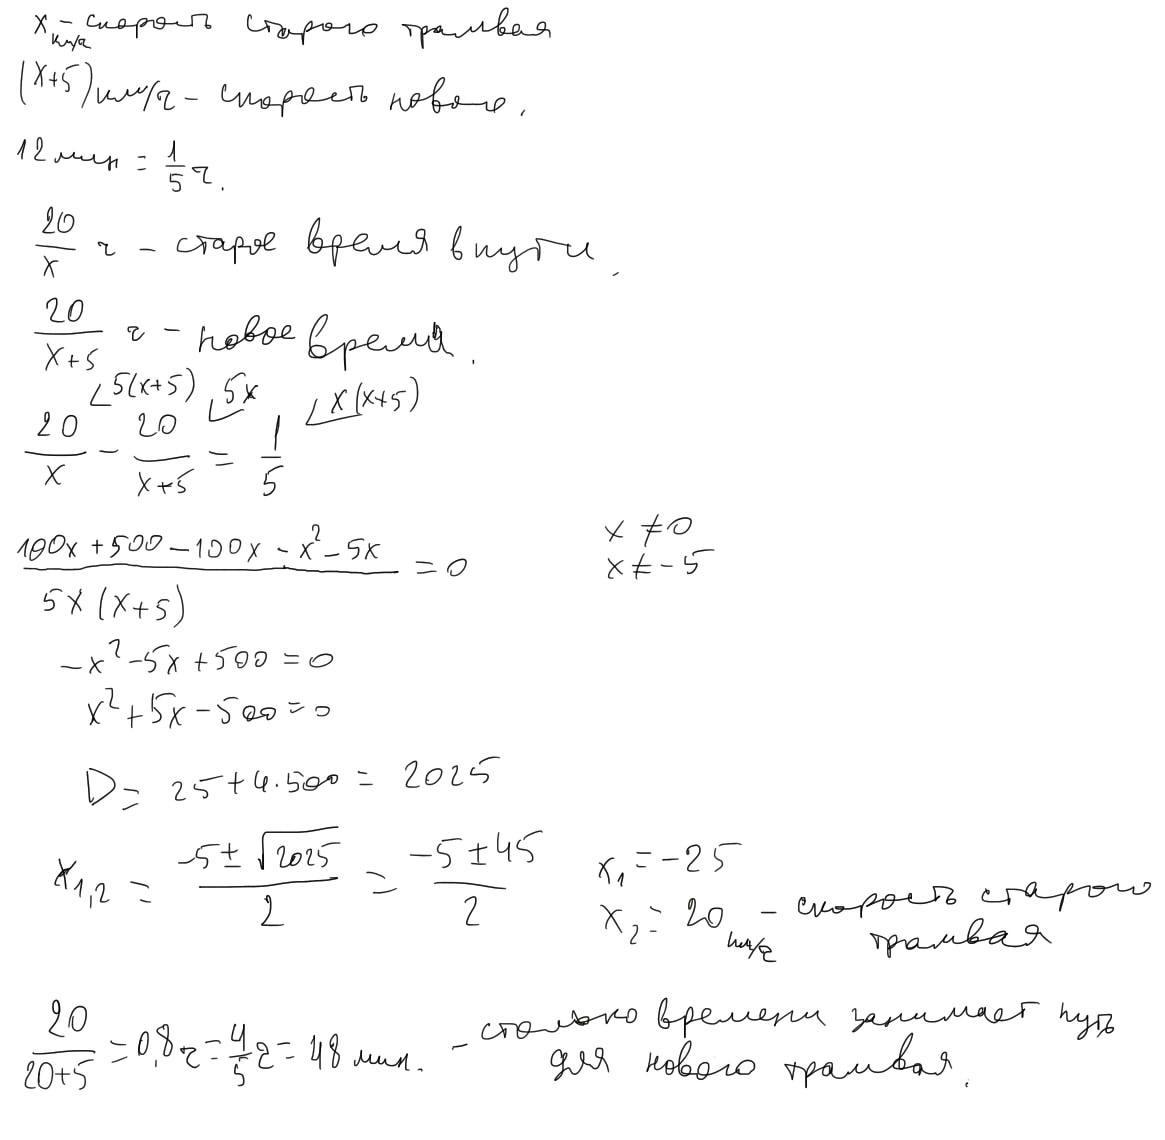 x км/ч - скорость старого трамвая
(x+5) км/ч - скорость нового.
12 мин = 1/5 ч.
20/x ч - старое время в пути.
20/(x+5) ч - новое время.
5(x+5) 5x x(x+5)
20/x - 20/(x+5) = 1/5
(100x + 500 - 100x - x² - 5x)/(5x(x+5)) = 0
x ≠ 0
x ≠ -5
-x² - 5x + 500 = 0
x² + 5x - 500 = 0
D = 25 + 4·500 = 2025
x₁,₂ = (-5 ± √2025)/2 = (-5 ± 45)/2
x₁ = -25
x₂ = 20 км/ч - скорость старого
трамвая
20/(20+5) = 0,8 ч = 4/5 ч = 48 мин. - столько времени занимает путь
для нового трамвая.